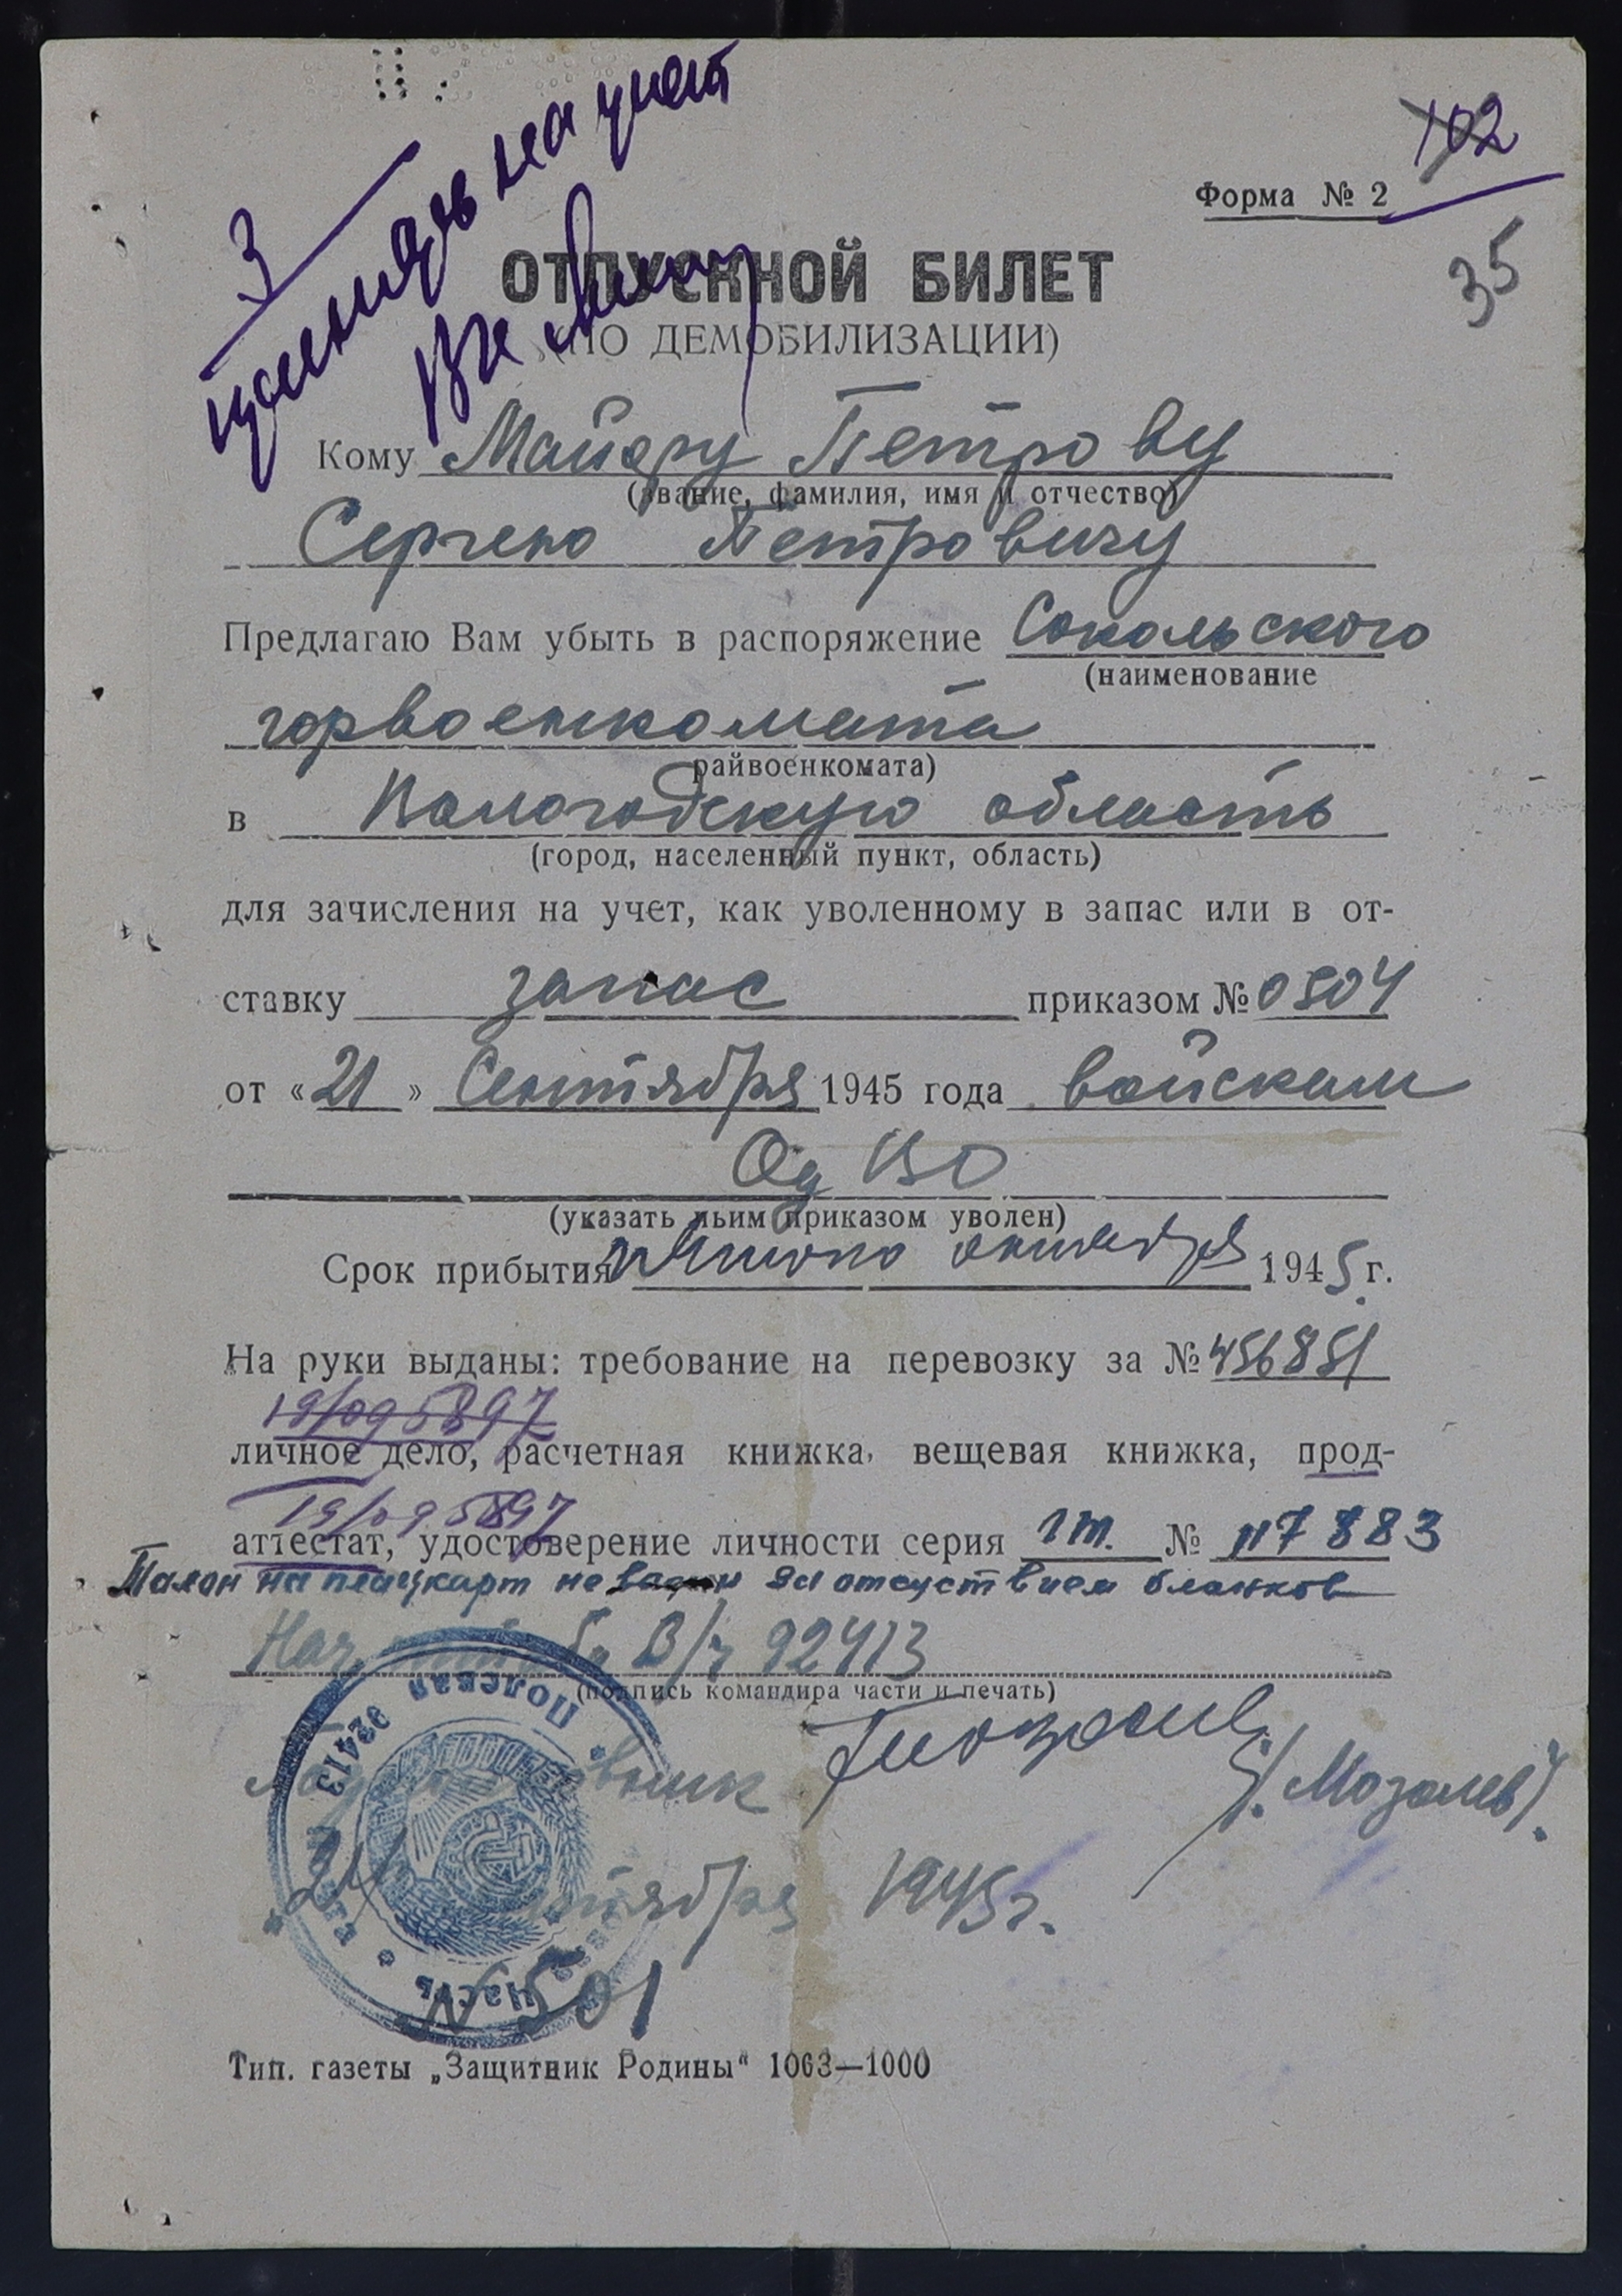 102
Форма № 2
35
3
на учет
ОТПУСКНОЙ БИЛЕТ
(ПО ДЕМОБИЛИЗАЦИИ)
Кому Майору Петрову
(звание, фамилия, имя и отчество)
Сергею Петровичу
Предлагаю Вам убыть в распоряжение Сокольского
(наименование
горвоенкомата
райвоенкомата)
в Вологодскую область
(город, населенный пункт, область)
для зачисления на учет, как уволенному в запас или в от-
ставку запас приказом № 0504
от «21» Сентября 1945 года войскам
Од ВО
(указать чьим приказом уволен)
Срок прибытия октября 1945 г.
На руки выданы: требование на перевозку за № 456851
19/09 5897
личное дело, расчетная книжка, вещевая книжка, прод-
19/09 5897
аттестат, удостоверение личности серия № 117883
Талон на плацкарт не за отсуствием бланков
Нач. В/ч 92413
(подпись командира части и печать)
Полевая 92413
/Мозолев/.
24 сентября 1945 г.
Часть
№ 501
Тип. газеты „Защитник Родины“ 1063—1000